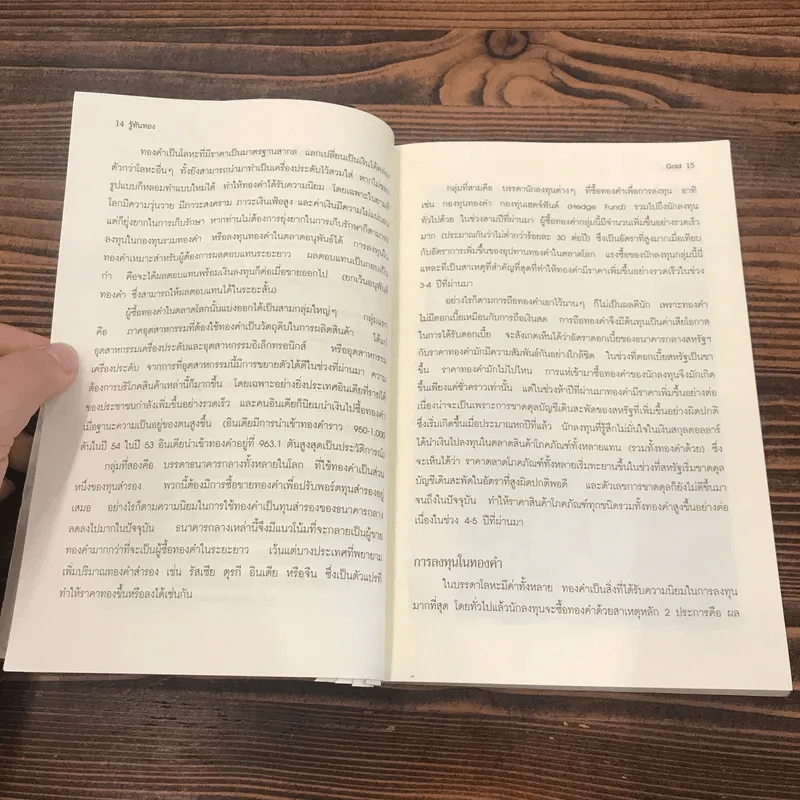 14 รู้ทันทอง
ทองคำเป็นโลหะที่มีราคาเป็นมาตรฐานสากล แลกเปลี่ยนเป็นเงินได้คล่อง
ตัวกว่าโลหะอื่นๆ ทั้งยังสามารถนำมาทำเป็นเครื่องประดับไว้สวมใส่ หากไม่ชอบ
รูปแบบก็หลอมทำแบบใหม่ได้ ทำให้ทองคำได้รับความนิยม โดยเฉพาะในยามที่
โลกมีความวุ่นวาย มีภาวะสงคราม ภาวะเงินเฟ้อสูง และค่าเงินมีความไม่แน่นอน
แต่ก็ยุ่งยากในการเก็บรักษา หากท่านไม่ต้องการยุ่งยากในการเก็บรักษาก็สามารถ
ลงทุนในกองทุนรวมทองคำ หรือลงทุนทองคำในตลาดอนุพันธ์ได้ การลงทุนใน
ทองคำเหมาะสำหรับผู้ต้องการผลตอบแทนระยะยาว ผลตอบแทนเป็นกอบเป็น
กำ คือจะได้ผลตอบแทนพร้อมเงินลงทุนก็ต่อเมื่อขายออกไป (ยกเว้นอนุพันธ์
ทองคำ ซึ่งสามารถให้ผลตอบแทนได้ในระยะสั้น)
ผู้ซื้อทองคำในตลาดโลกนั้นแบ่งออกได้เป็นสามกลุ่มใหญ่ๆ กลุ่มแรก
คือ ภาคอุตสาหกรรมที่ต้องใช้ทองคำเป็นวัตถุดิบในการผลิตสินค้า ได้แก่
อุตสาหกรรมเครื่องประดับและอุตสาหกรรมอิเล็กทรอนิกส์ หรืออุตสาหกรรม
เครื่องประดับ จากการที่อุตสาหกรรมนี้มีการขยายตัวได้ดีในช่วงที่ผ่านมา ความ
ต้องการบริโภคสินค้าเหล่านี้ก็มากขึ้น โดยเฉพาะอย่างยิ่งประเทศอินเดียที่รายได้
ของประชาชนกำลังเพิ่มขึ้นอย่างรวดเร็ว และคนอินเดียก็นิยมนำเงินไปซื้อทองคำ
เมื่อฐานะความเป็นอยู่ของตนสูงขึ้น (อินเดียมีการนำเข้าทองคำราว 950-1,000
ตันในปี 54 ในปี 53 อินเดียนำเข้าทองคำอยู่ที่ 963.1 ตันสูงสุดเป็นประวัติการณ์)
กลุ่มที่สองคือ บรรดาธนาคารกลางทั้งหลายในโลก ที่ใช้ทองคำเป็นส่วน
หนึ่งของทุนสำรอง พวกนี้ต้องมีการซื้อขายทองคำเพื่อปรับพอร์ตทุนสำรองอยู่
เสมอ อย่างไรก็ตามความนิยมในการใช้ทองคำเป็นทุนสำรองของธนาคารกลาง
ลดลงไปมากในปัจจุบัน ธนาคารกลางเหล่านี้จึงมีแนวโน้มที่จะกลายเป็นผู้ขาย
ทองคำมากกว่าที่จะเป็นผู้ซื้อทองคำในระยะยาว เว้นแต่บางประเทศที่พยายาม
เพิ่มปริมาณทองคำสำรอง เช่น รัสเซีย ตุรกี อินเดีย หรือจีน ซึ่งเป็นตัวแปรที่
ทำให้ราคาทองขึ้นหรือลงได้เช่นกัน
Gold 15
กลุ่มที่สามคือ บรรดานักลงทุนต่างๆ ที่ซื้อทองคำเพื่อการลงทุน อาทิ
เช่น กองทุนทองคำ กองทุนเฮดจ์ฟันด์ (Hedge Fund) รวมไปถึงนักลงทุน
ทั่วไปด้วย ในช่วงสามปีที่ผ่านมา ผู้ซื้อทองคำกลุ่มนี้มีจำนวนเพิ่มขึ้นอย่างรวดเร็ว
มาก (ประมาณกันว่าไม่ต่ำกว่าร้อยละ 30 ต่อปี) ซึ่งเป็นอัตราที่สูงมากเมื่อเทียบ
กับอัตราการเพิ่มขึ้นของอุปทานทองคำในตลาดโลก แรงซื้อของนักลงทุนกลุ่มนี้นี่
แหละที่เป็นสาเหตุที่สำคัญที่สุดที่ทำให้ทองคำมีราคาเพิ่มขึ้นอย่างรวดเร็วในช่วง
3-4 ปีที่ผ่านมา
อย่างไรก็ตามการถือทองคำเอาไว้นานๆ ก็ไม่เป็นผลดีนัก เพราะทองคำ
ไม่มีดอกเบี้ยเหมือนกับการถือเงินสด การถือทองคำจึงมีต้นทุนเป็นค่าเสียโอกาส
ในการได้รับดอกเบี้ย จะสังเกตเห็นได้ว่าอัตราดอกเบี้ยของธนาคารกลางสหรัฐฯ
กับราคาทองคำมักมีความสัมพันธ์กันอย่างใกล้ชิด ในช่วงที่ดอกเบี้ยสหรัฐเป็นขา
ขึ้น ราคาทองคำมักไม่ไปไหน การแห่เข้ามาซื้อทองคำของนักลงทุนจึงมักเกิด
ขึ้นเพียงแค่ชั่วคราวเท่านั้น แต่ในช่วงห้าปีที่ผ่านมาทองคำมีราคาเพิ่มขึ้นอย่างต่อ
เนื่องน่าจะเป็นเพราะการขาดดุลบัญชีเดินสะพัดของสหรัฐที่เพิ่มขึ้นอย่างผิดปกติ
ซึ่งเริ่มเกิดขึ้นเมื่อประมาณหกปีที่แล้ว นักลงทุนที่รู้สึกไม่มั่นใจในเงินสกุลดอลลาร์
ได้นำเงินไปลงทุนในตลาดสินค้าโภคภัณฑ์ทั้งหลายแทน (รวมทั้งทองคำด้วย) ซึ่ง
จะเห็นได้ว่า ราคาตลาดโภคภัณฑ์ทั้งหลายเริ่มทะยานขึ้นในช่วงที่สหรัฐเริ่มขาดดุล
บัญชีเดินสะพัดในอัตราที่สูงผิดปกติพอดี และตัวเลขการขาดดุลก็ยังไม่ดีขึ้นมา
จนถึงในปัจจุบัน ทำให้ราคาสินค้าโภคภัณฑ์ทุกชนิดรวมทั้งทองคำสูงขึ้นอย่างต่อ
เนื่องในช่วง 4-5 ปีที่ผ่านมา
การลงทุนในทองคำ
ในบรรดาโลหะมีค่าทั้งหลาย ทองคำเป็นสิ่งที่ได้รับความนิยมในการลงทุน
มากที่สุด โดยทั่วไปแล้วนักลงทุนจะซื้อทองคำด้วยสาเหตุหลัก 2 ประการคือ ผล